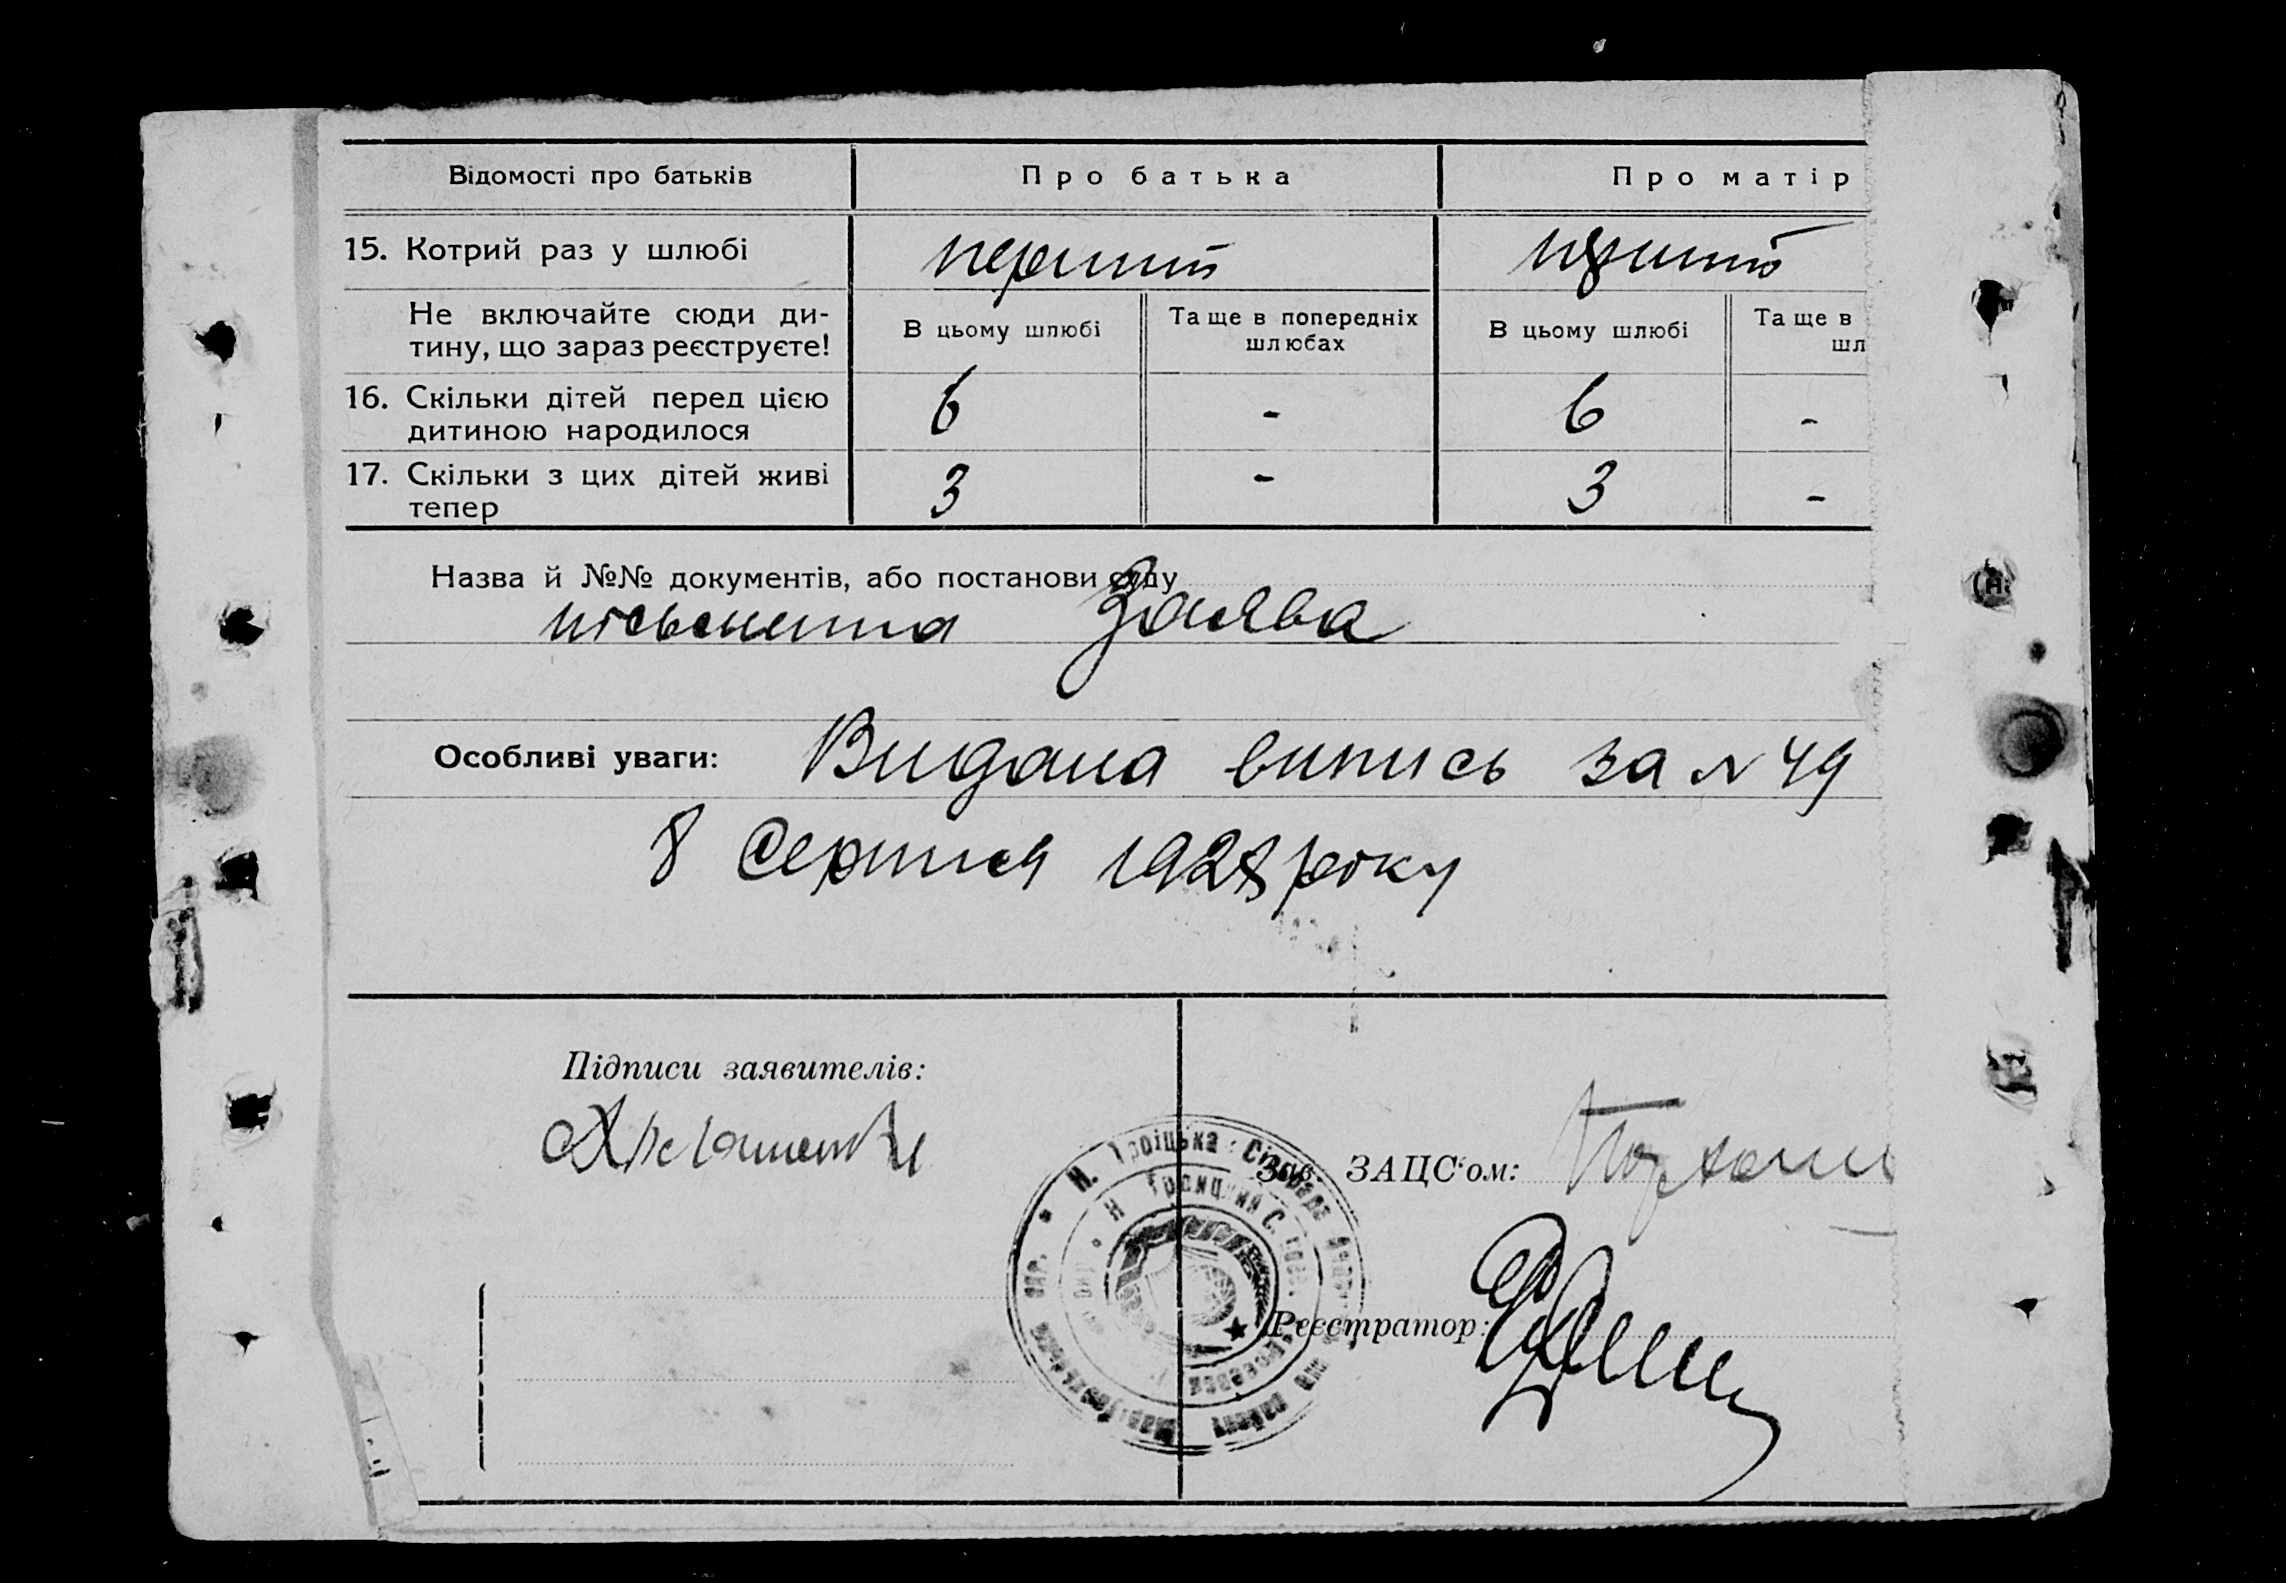 Відомості про батьків Про батька Про матір
15. Котрий раз у шлюбі перший перший
Не включайте сюди ди-
тину, що зараз реєструєте!
В цьому шлюбі Та ще в попередніх
шлюбах
В цьому шлюбі Та ще в
шл
16. Скільки дітей перед цією
дитиною народилося
6 - 6 -
17. Скільки з цих дітей живі
тепер
3 - 3 -
Назва й №№ документів, або постанови суду
письменна Заява
Особливі уваги: Видана випись за № 49
8 Серпня 1928 року
Підписи заявителів:
Н. Троїцька Сільрада
району
окр.
Н Троицкий С.
Зав. ЗАЦС'ом:
Реєстратор: